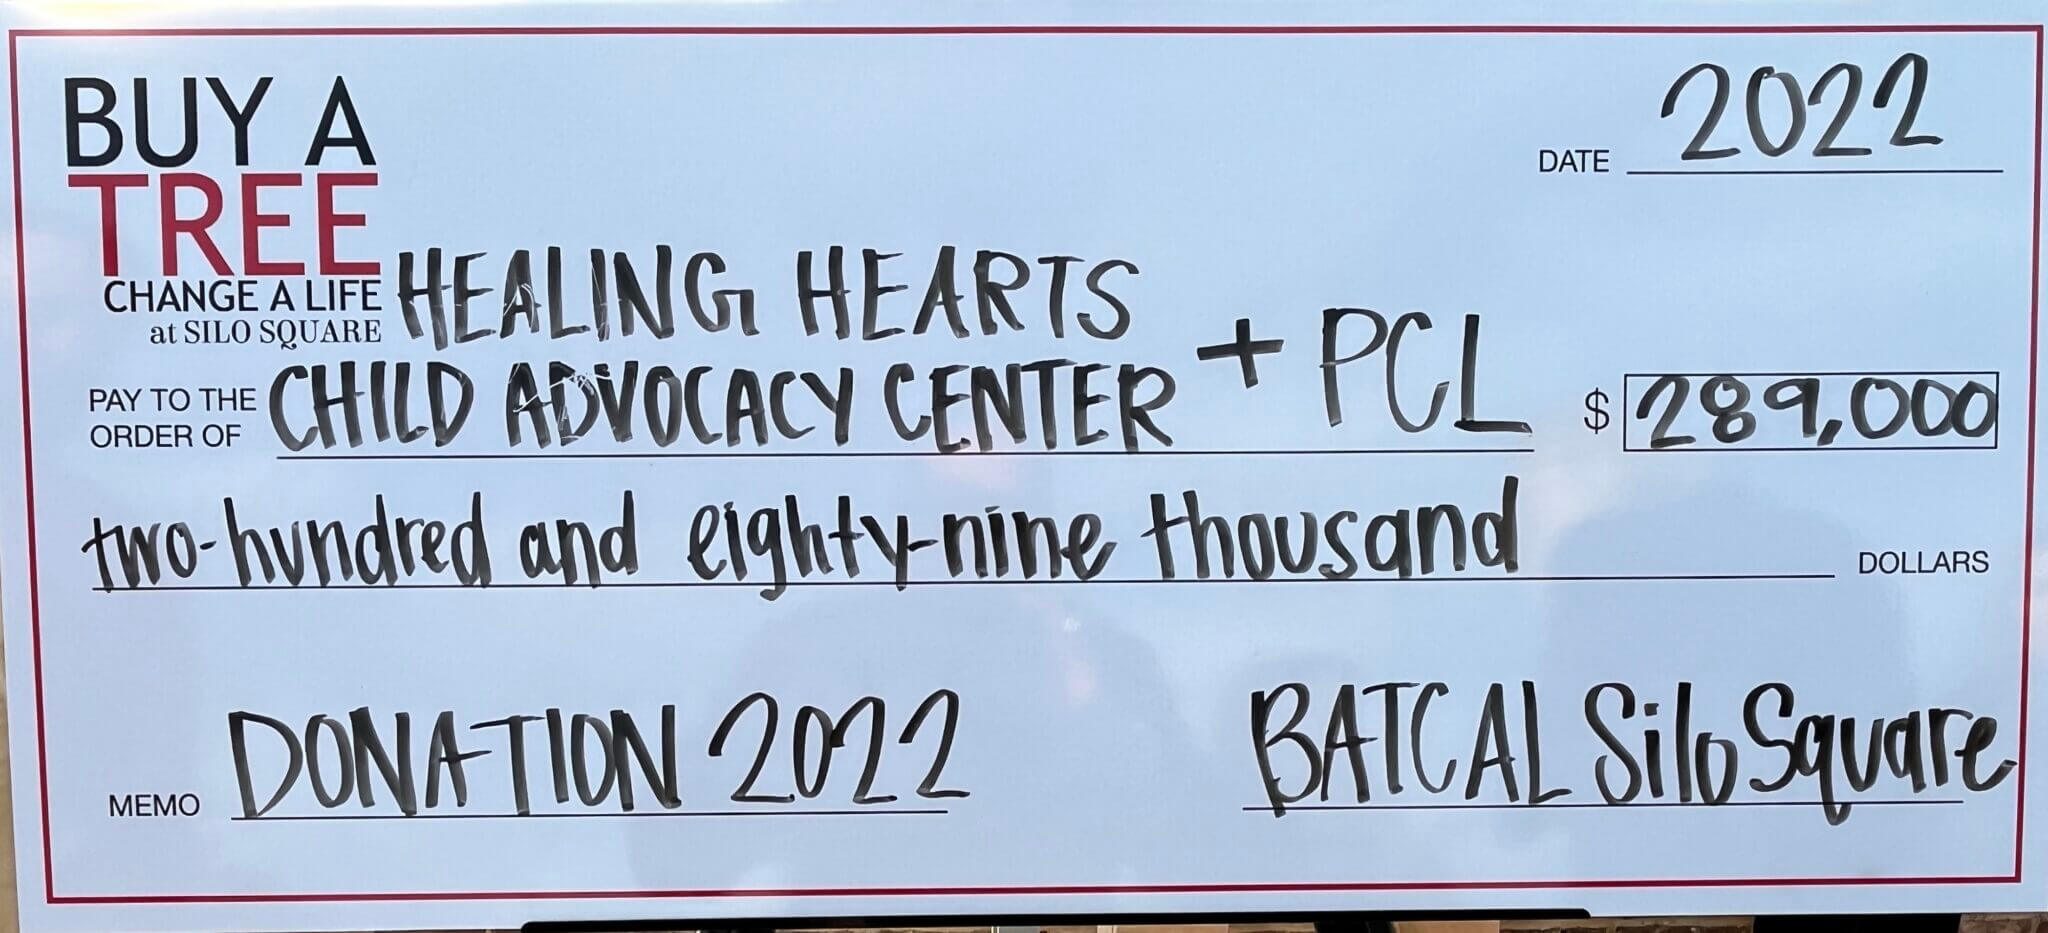 BUY A
TREE
CHANGE A LIFE
at SILO SQUARE
DATE 2022
HEALING HEARTS
PAY TO THE ORDER OF CHILD ADVOCACY CENTER + PCL $ 289,000
two-hundred and eighty-nine thousand DOLLARS
MEMO DONATION 2022 BATCAL Silo Square